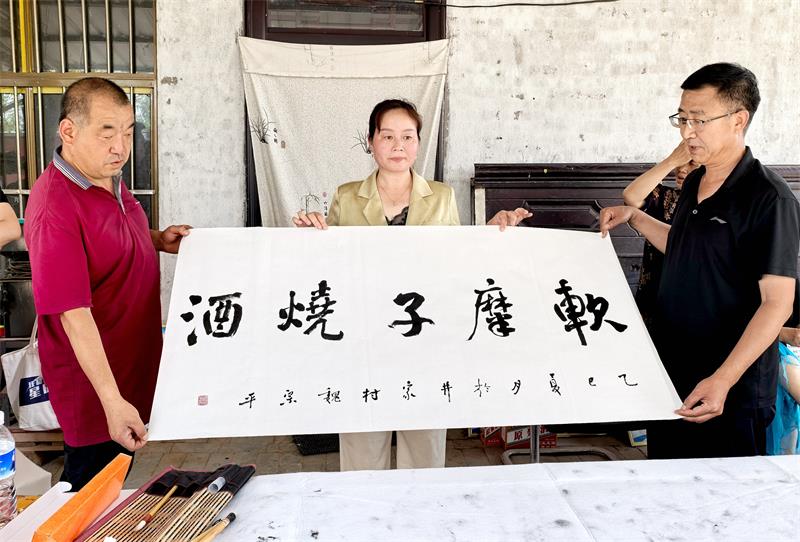 軟糜子燒酒
乙巳夏月於井家村魏宗平